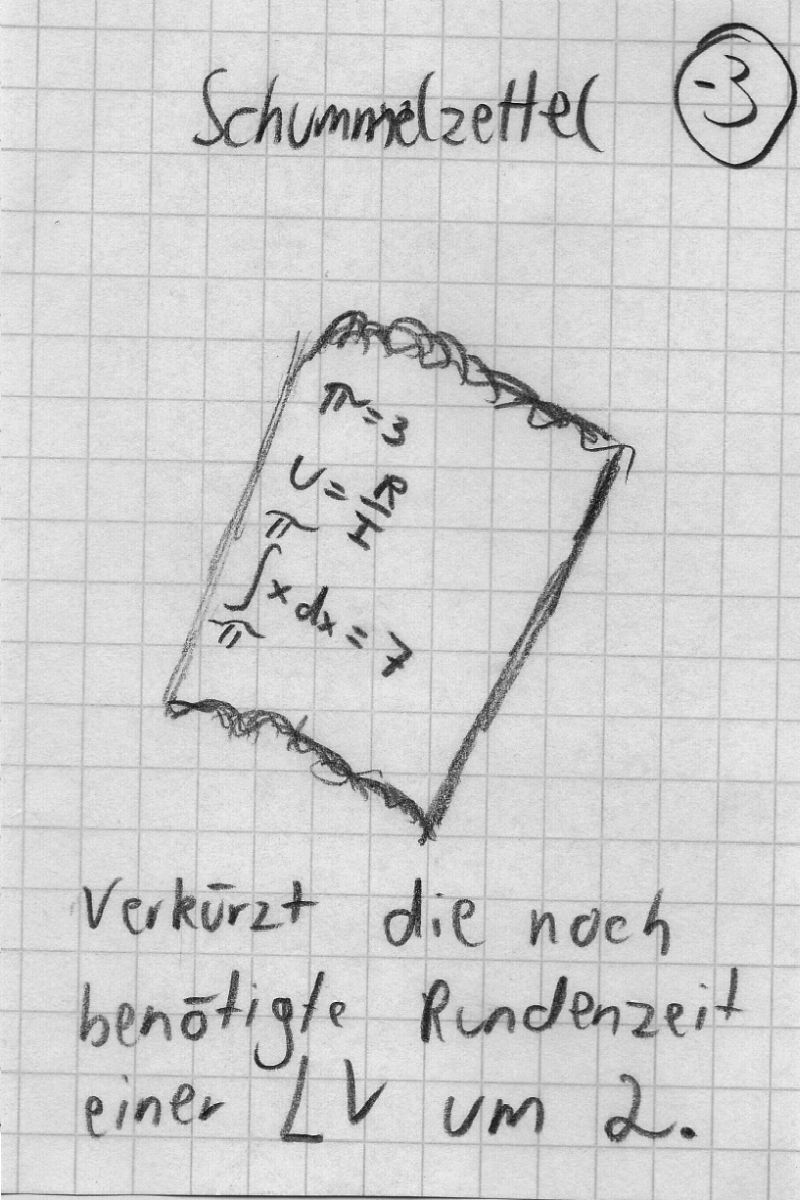 Schummelzettel
-3
π=3
U=R/I
∫_π^π x dx = 7
Verkürzt die noch
benötigte Rundenzeit
einer LV um 2.